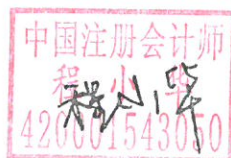 中国注册会计师
程小
420001543050